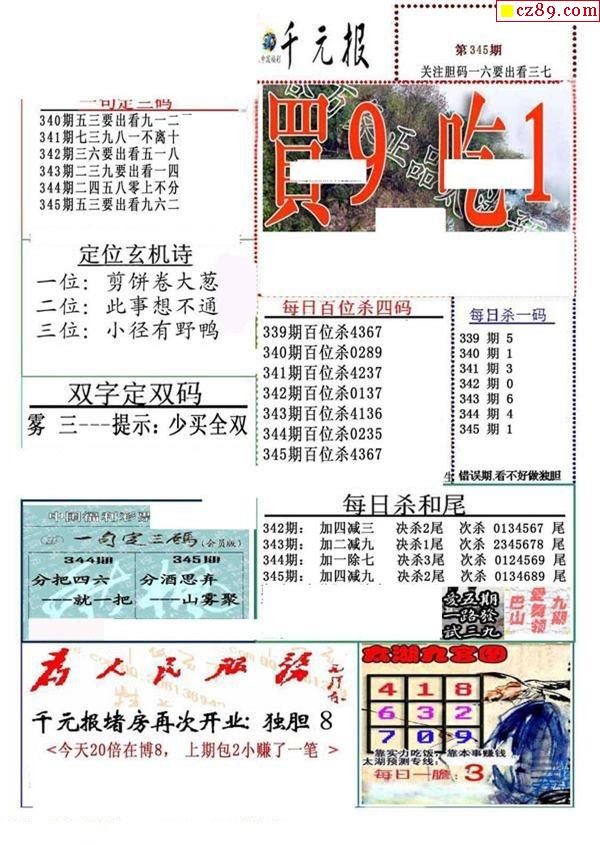 cz89.com
千元报
第345期
关注胆码一六要出看三七
買9 吃1
一句定三码
340期五三要出看九一二
341期七三九八一不离十
342期三六要出看五一八
343期二三九要出看一四
344期二四五八零上不分
345期五三要出看九六二
定位玄机诗
一位：剪饼卷大葱
二位：此事想不通
三位：小径有野鸭
双字定双码
雾 三---提示：少买全双
每日百位杀四码
339期百位杀4367
340期百位杀0289
341期百位杀4237
342期百位杀0137
343期百位杀4136
344期百位杀0235
345期百位杀4367
每日杀一码
339 期 5
340 期 1
341 期 3
342 期 0
343 期 6
344 期 4
345 期 1
错误期,看不好做独胆
中国福利彩票
一句定三码(会员版)
344期
分把四六
---就一把
345期
分酒思弃
---山雾聚
每日杀和尾
342期： 加四减三 决杀2尾 次杀 0134567 尾
343期： 加二减九 决杀1尾 次杀 2345678 尾
344期： 加一除七 决杀3尾 次杀 0124569 尾
345期： 加四减二 决杀2尾 次杀 0134689 尾
爱五期
一路发
试三九
为人民服务
千元报堵房再次开业:独胆 8
<今天20倍在博8， 上期包2小赚了一笔 >
太湖九宫图
4 1 8
6 3 2
7 0 9
靠实力吃饭,靠本事赚钱
太湖预测专线:
每日一胆:3